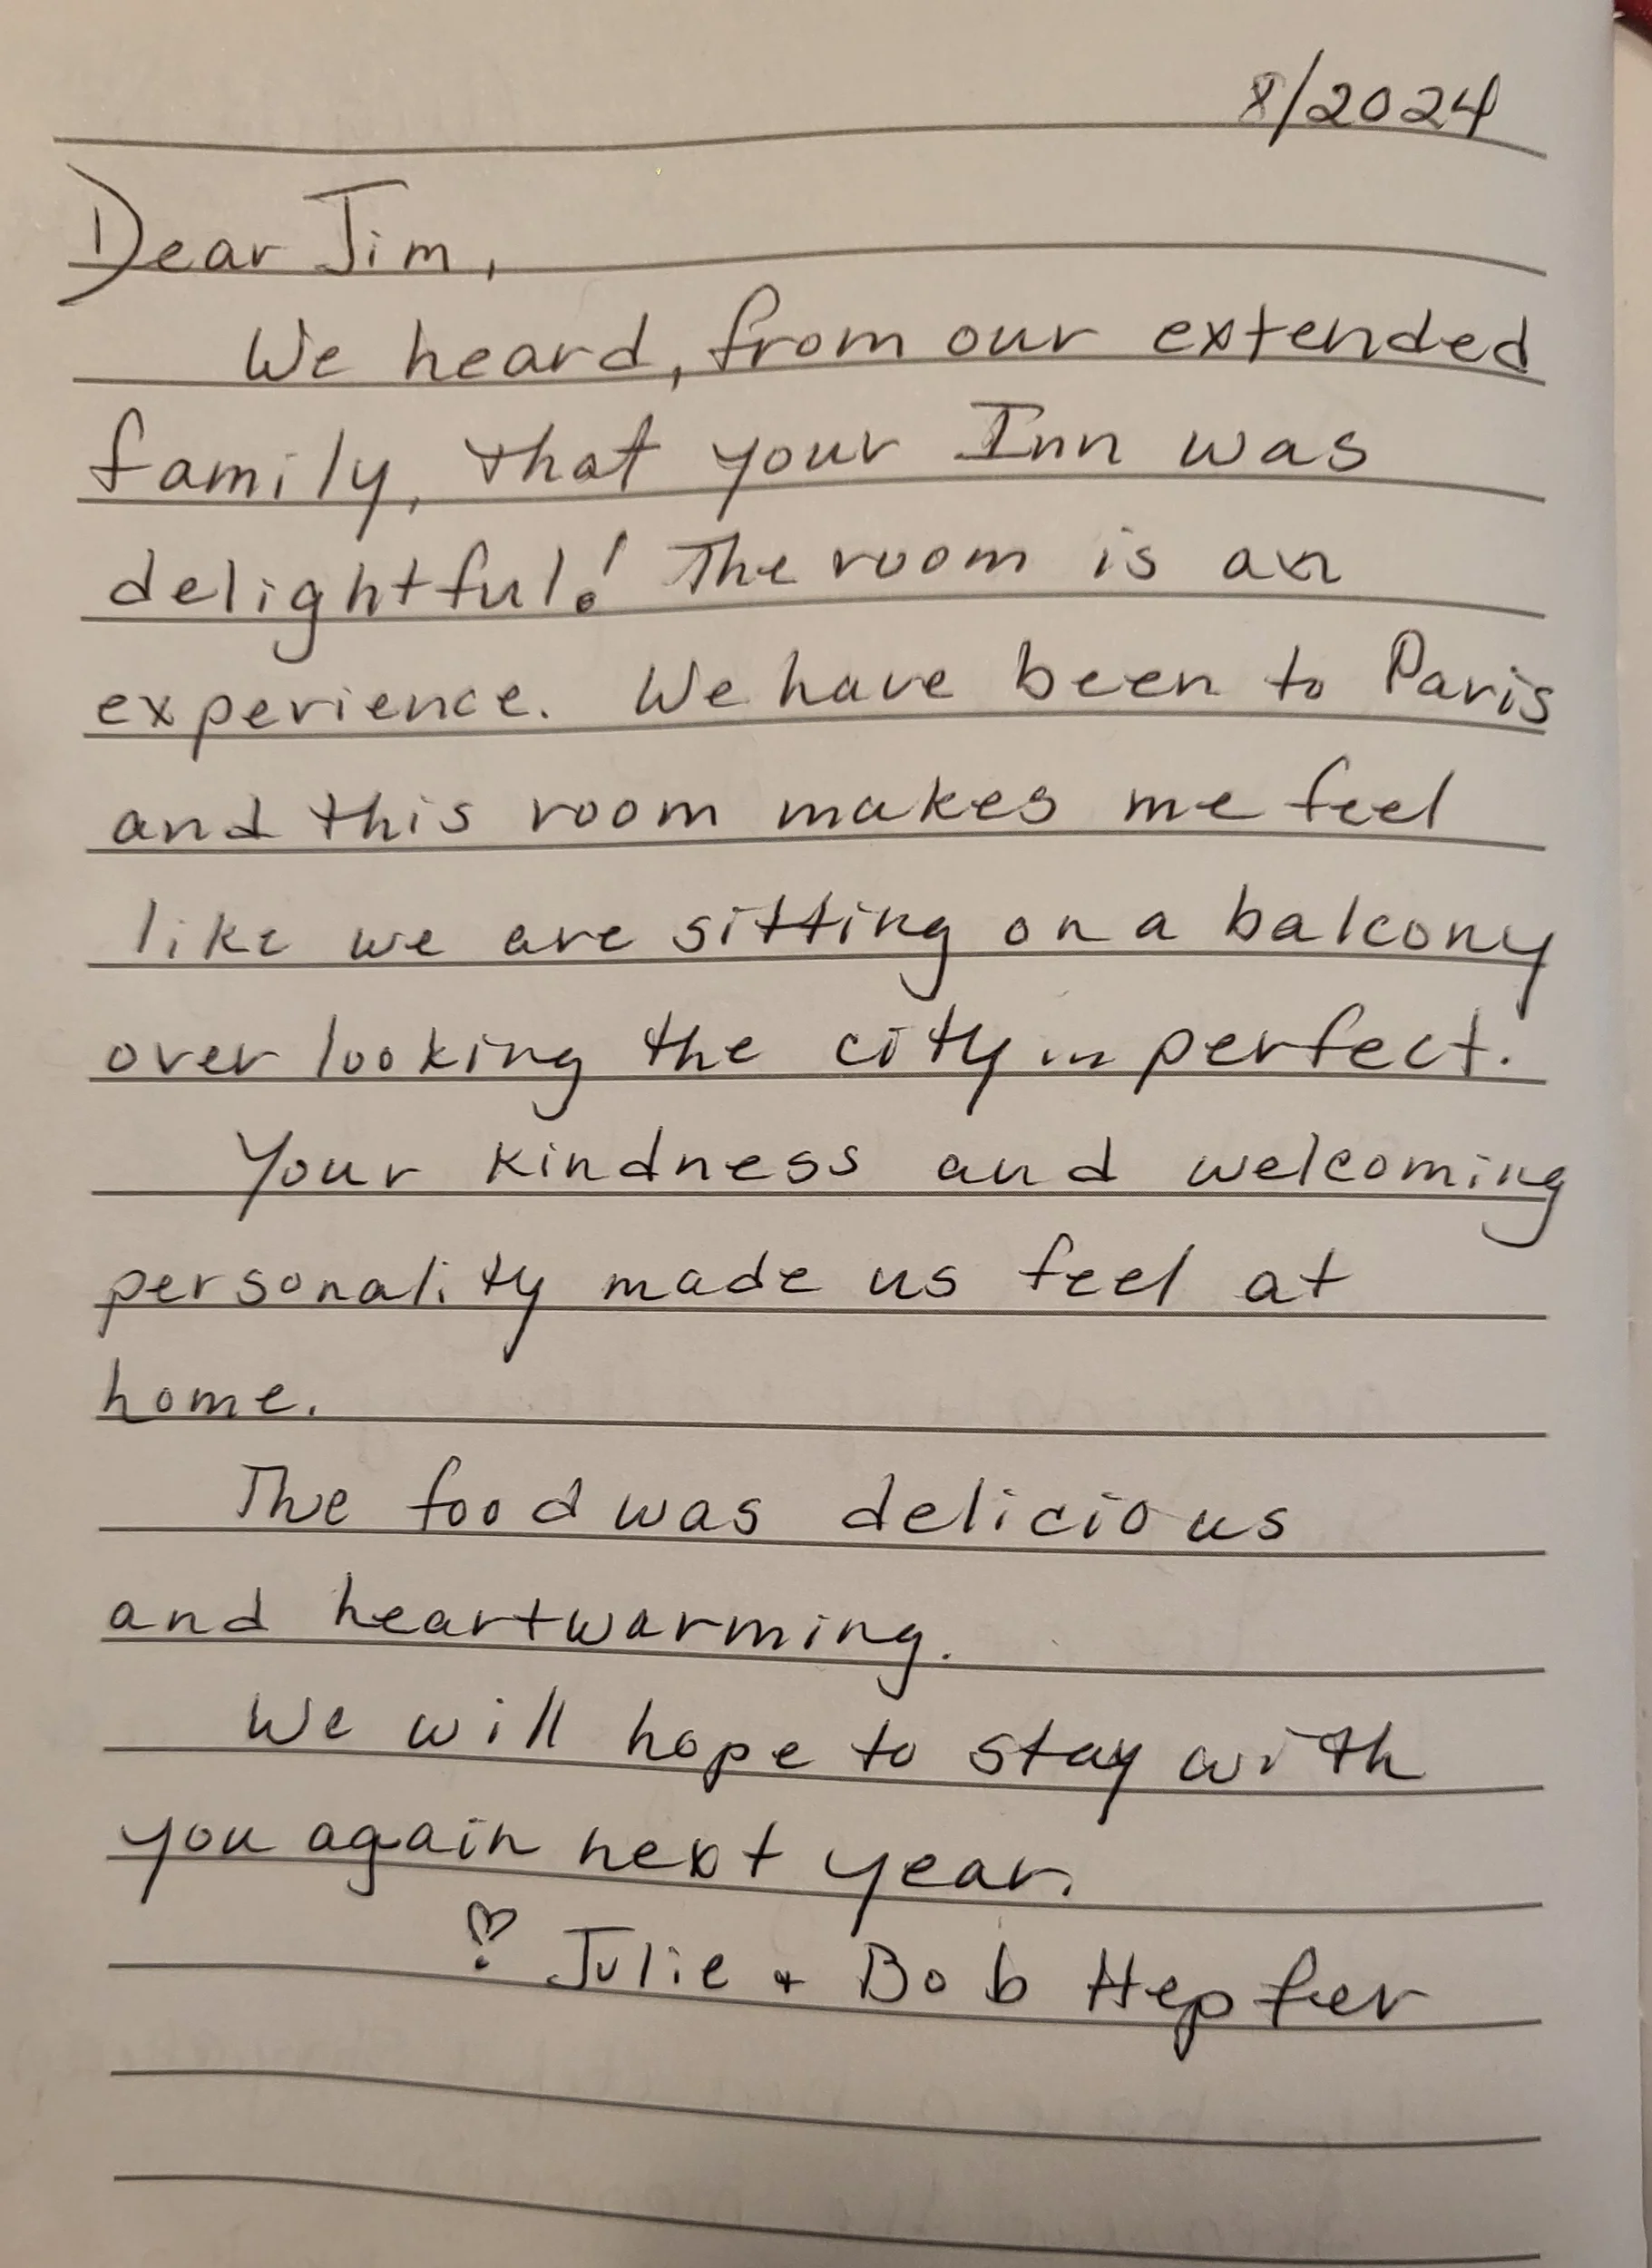 8/2024
Dear Jim,
We heard, from our extended
family, that your Inn was
delightful! The room is an
experience. We have been to Paris
and this room makes me feel
like we are sitting on a balcony
over looking the city in perfect.
Your kindness and welcoming
personality made us feel at
home.
The food was delicious
and heartwarming.
We will hope to stay with
you again next year.
♡ Julie + Bob Hepfer